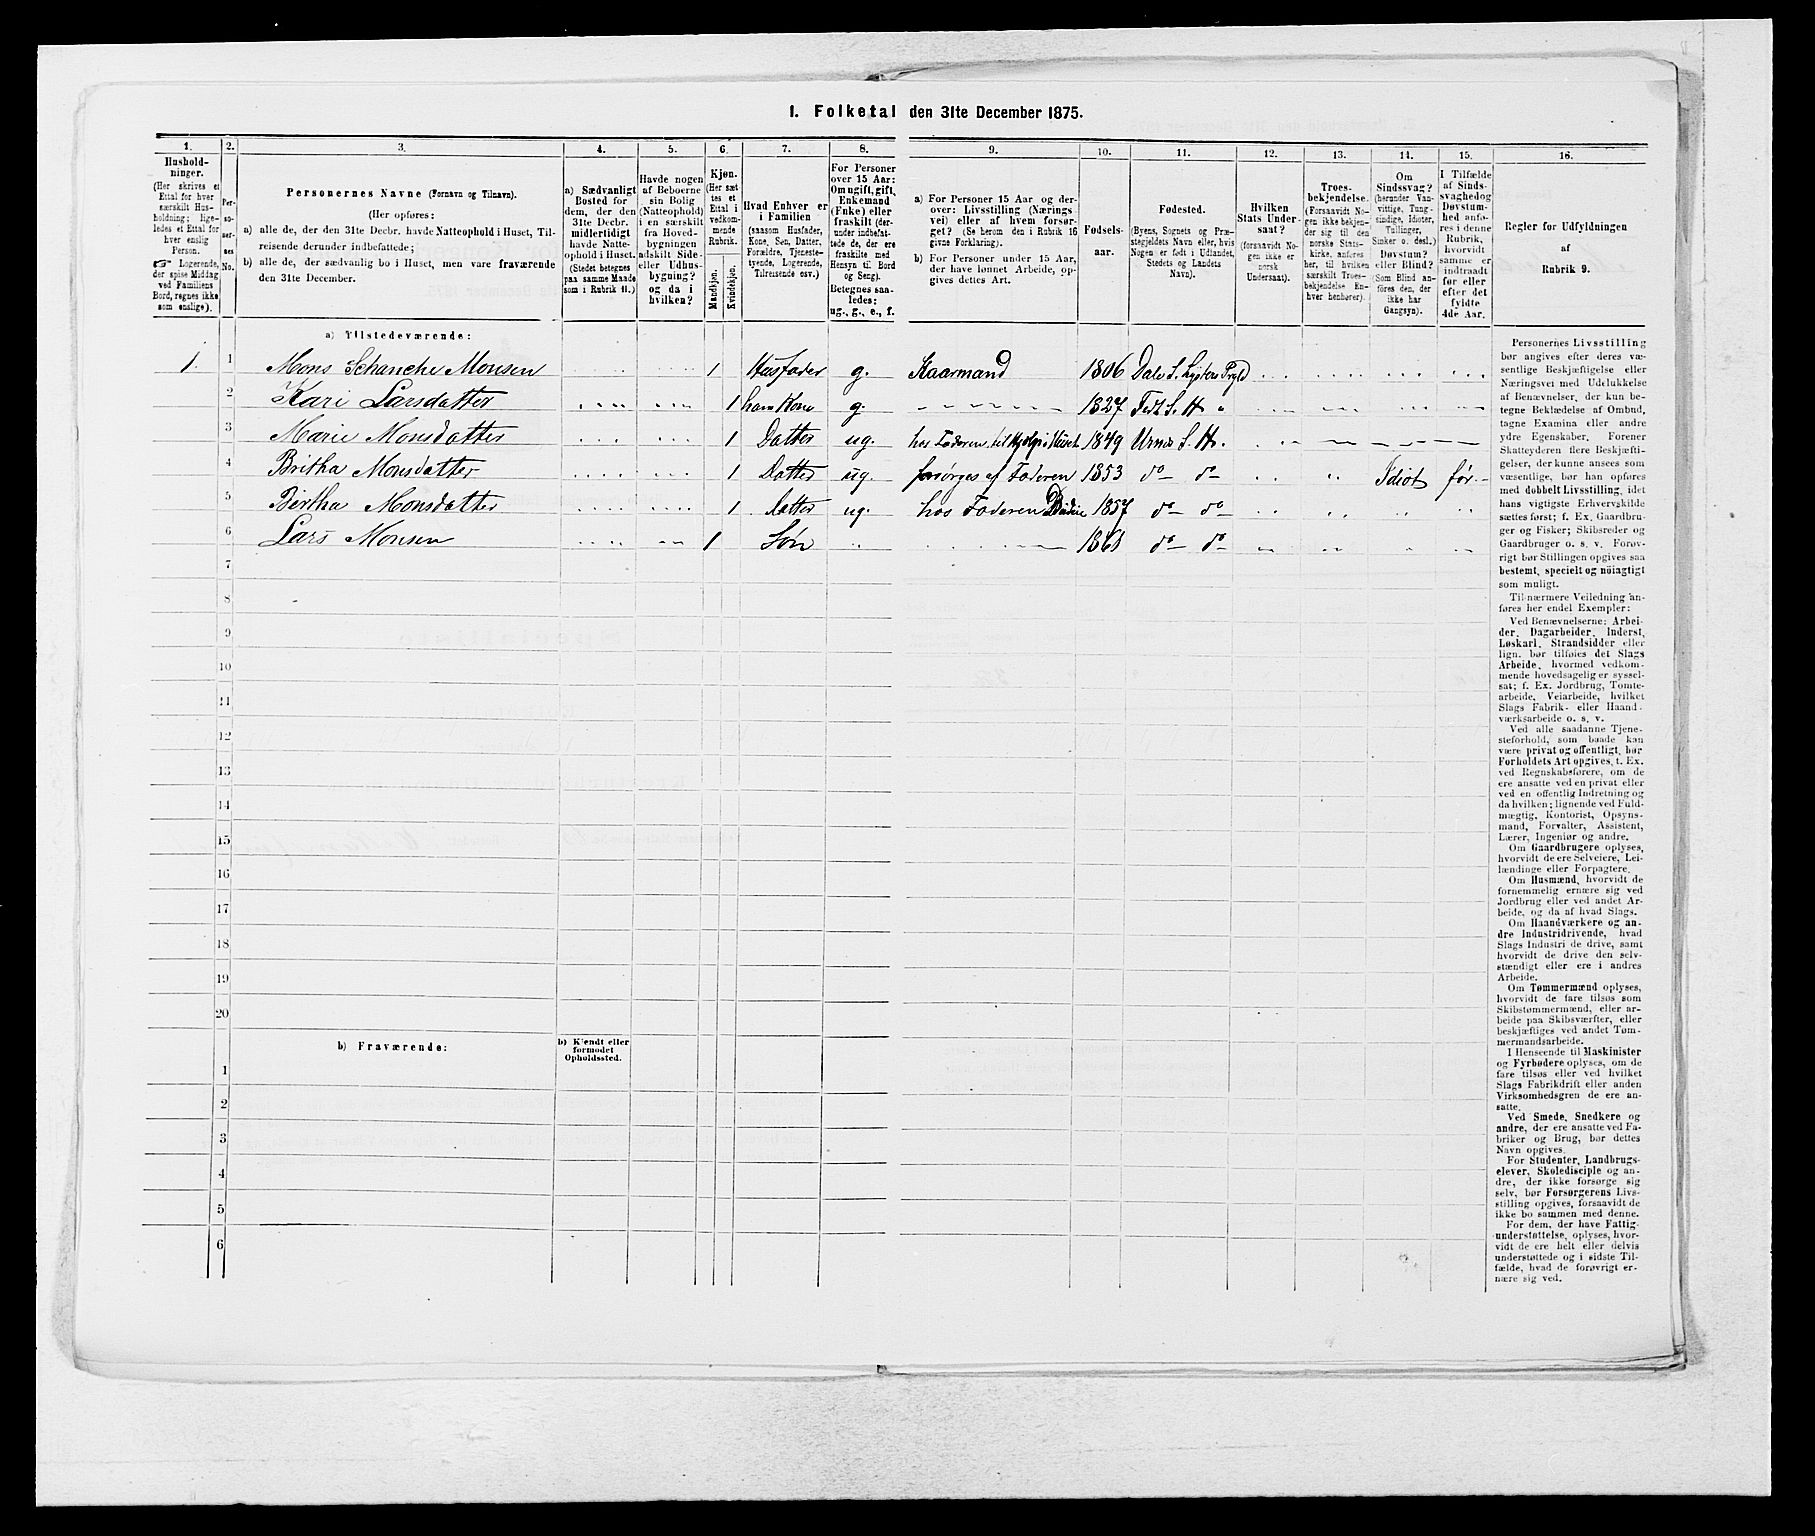 I. Folketal den 31te December 1875.
1. 2. 3. 4. 5. 6. 7. 8. 9. 10. 11. 12. 13. 14. 15. 16.
Hushold-
ninger.
(Her skrives et
Ettal for hver
særskilt Hus-
holdning; lige-
ledes et Ettal for
hver enslig
Person.
☞ Logerende,
der spise Middag
ved Familiens
Bord, regnes ikke
som enslige).
Per-
so-
ner-
nes
No.
Personernes Navne (Fornavn og Tilnavn).
(Her opføres:
a) alle de, der den 31te Decbr. havde Natteophold i Huset, Til-
reisende derunder indbefattede;
b) alle de, der sædvanlig bo i Huset, men vare fraværende
den 31te December.
a) Sædvanligt
Bosted for
dem, der den
31te Decbr.
midlertidigt
havde Natte-
ophold i Huset.
(Stedet betegnes
paa samme Maade
som i Rubrik 11.)
Havde nogen
af Beboerne
sin Bolig
(Natteophold)
i en særskilt
fra Hoved-
bygningen
adskilt Side-
eller Udhus-
bygning?
og da i
hvilken?
Kjøn.
(Her sæt-
tes et
Ettal i
vedkom-
mende
Rubrik.
Mandkjøn.
Kvindekjøn.
Hvad Enhver er
i Familien
(saasom Husfader,
Kone, Søn, Datter,
Forældre, Tjeneste-
tyende, Logerende,
Tilreisende osv.)
For Personer
over 15 Aar:
Om ugift, gift,
Enkemand
(Enke) eller
fraskilt (der-
under indbefat-
tede de, der ere
fraskilte med
Hensyn til Bord
og Seng).
Betegnes saa-
ledes:
ug., g., e., f.
a) For Personer 15 Aar og der-
over: Livsstilling (Nærings-
vei) eller af hvem forsør-
get? (Se herom den i Rubrik 16
givne Forklaring).
b) For Personer under 15 Aar,
der have lønnet Arbeide, op-
gives dettes Art.
Fødsels-
aar.
Fødested.
(Byens, Sognets og Præ-
stegjeldets Navn eller, hvis
Nogen er født i Udlandet,
Stedets og Landets
Navn).
Hvilken
Stats Under-
saat?
(forsaavidt No-
gen ikke er
norsk
Undersaat).
Troes-
bekjendelse.
(Forsaavidt No-
gen ikke bekjen-
der sig til den
norske Stats-
kirke, anføres
her, til hvilken
særskilt Troes-
bekjendelse En-
hver henhører).
Om
Sindssvag?
(herunder Van-
vittige, Tung-
sindige, Idioter,
Tullinger,
Sinker o. desl.)
Døvstum?
eller Blind?
(Som Blind an-
føres den, der
ikke har
Gangsyn).
I Tilfælde
af Sinds-
svaghed og
Døvstum-
hed anfø-
res i denne
Rubrik,
hvorvidt
samme er
indtraadt
før eller
efter det
fyldte
4de Aar.
Regler for Udfyldningen
af
Rubrik 9.
a) Tilstedeværende:
1. 1 Mons Schanche Monsen 1 Husfader g. Kaarmand 1806 Dale S. Lysters Prgld
2 Kari Larsdatter 1 hans Kone g. 1827 Fedt S. H "
3 Marie Monsdatter 1 Datter ug. hos Faderen, til Hjelp i Huset 1849 Urnes S. H.
4 Britha Monsdatter 1 Datter ug. forsørges af Faderen 1853 do do Idiot før.
5 Bertha Monsdatter 1 Datter ug. hos Faderen 1857 do do
6 Lars Monsen 1 Søn 1861 do do
7
8
9
10
11
12
13
14
15
16
17
18
19
20
b) Fraværende: b) Kjendt eller
formodet
Opholdssted.
1
2
3
4
5
6
Personernes Livsstilling
bør angives efter deres væ-
sentlige Beskjæftigelse eller
Næringsvei med Udelukkelse
af Benævnelser, der kun be-
tegne Beklædelse af Ombud,
tagne Examina eller andre
ydre Egenskaber. Forener
Skatteyderen flere Beskjæfti-
gelser, der kunne ansees som
væsentlige, bør han opgives
med dobbelt Livsstilling, idet
hans vigtigste Erhvervskilde
sættes først; f. Ex. Gaardbru-
ger og Fisker; Skibsreder og
Gaardbruger o. s. v. Forøv-
rigt bør Stillingen opgives saa
bestemt, specielt og nøiagtigt
som muligt.
Til nærmere Veiledning an-
føres her endel Exempler:
Ved Benævnelserne: Arbei-
der, Dagarbeider, Inderst,
Løskarl, Strandsidder eller
lign. bør tilføies det Slags
Arbeide, hvormed vedkom-
mende hovedsagelig er syssel-
sat; f. Ex. Jordbrug, Tomte-
arbeide, Veiarbeide, hvilket
Slags Fabrik- eller Haand-
værksarbeide o. s. v.
Ved alle saadanne Tjene-
steforhold, som baade kan
være privat og offentligt, bør
Forholdets Art opgives, t. Ex.
ved Regnskabsførere, om de
ere ansatte ved en privat eller
ved en offentlig Indretning og
da hvilken; lignende ved Fuld-
mægtig, Kontorist, Opsyns-
mand, Forvalter, Assistent,
Lærer, Ingeniør og andre.
Om Gaardbrugere oplyses,
hvorvidt de ere Selveiere, Lei-
lændinge eller Forpagtere.
Om Husmænd, hvorvidt de
fornemmelig ernære sig ved
Jordbrug eller ved andet Ar-
beide, og da af hvad Slags.
Om Haandværkere og an-
dre Industridrivende, hvad
Slags Industri de drive, samt
hvorvidt de drive den selv-
stændigt eller ere i andres
Arbeide.
Om Tømmermænd oplyses,
hvorvidt de fare tilsøs som
Skibstømmermænd, eller ar-
beide paa Skibsværfter, eller
beskjæftiges ved andet Tøm-
mermandsarbeide.
I Henseende til Maskinister
og Fyrbødere oplyses, om de
fare tilsøs eller ved hvilket
Slags Fabrikdrift eller anden
Virksomhedsgren de ere an-
satte.
Ved Smede, Snedkere og
andre, der ere ansatte ved Fa-
briker og Brug, bør dettes
Navn opgives.
For Studenter, Landbrugs-
elever, Skoledisciple og an-
dre, der ikke forsørge sig
selv, bør Forsørgerens Livs-
stilling opgives, forsaavidt de
ikke bo sammen med denne.
For dem, der have Fattig-
understøttelse, oplyses, hvor-
vidt de ere helt eller delvis
understøttede og i sidste Til-
fælde, hvad de forøvrigt er-
nære sig ved.